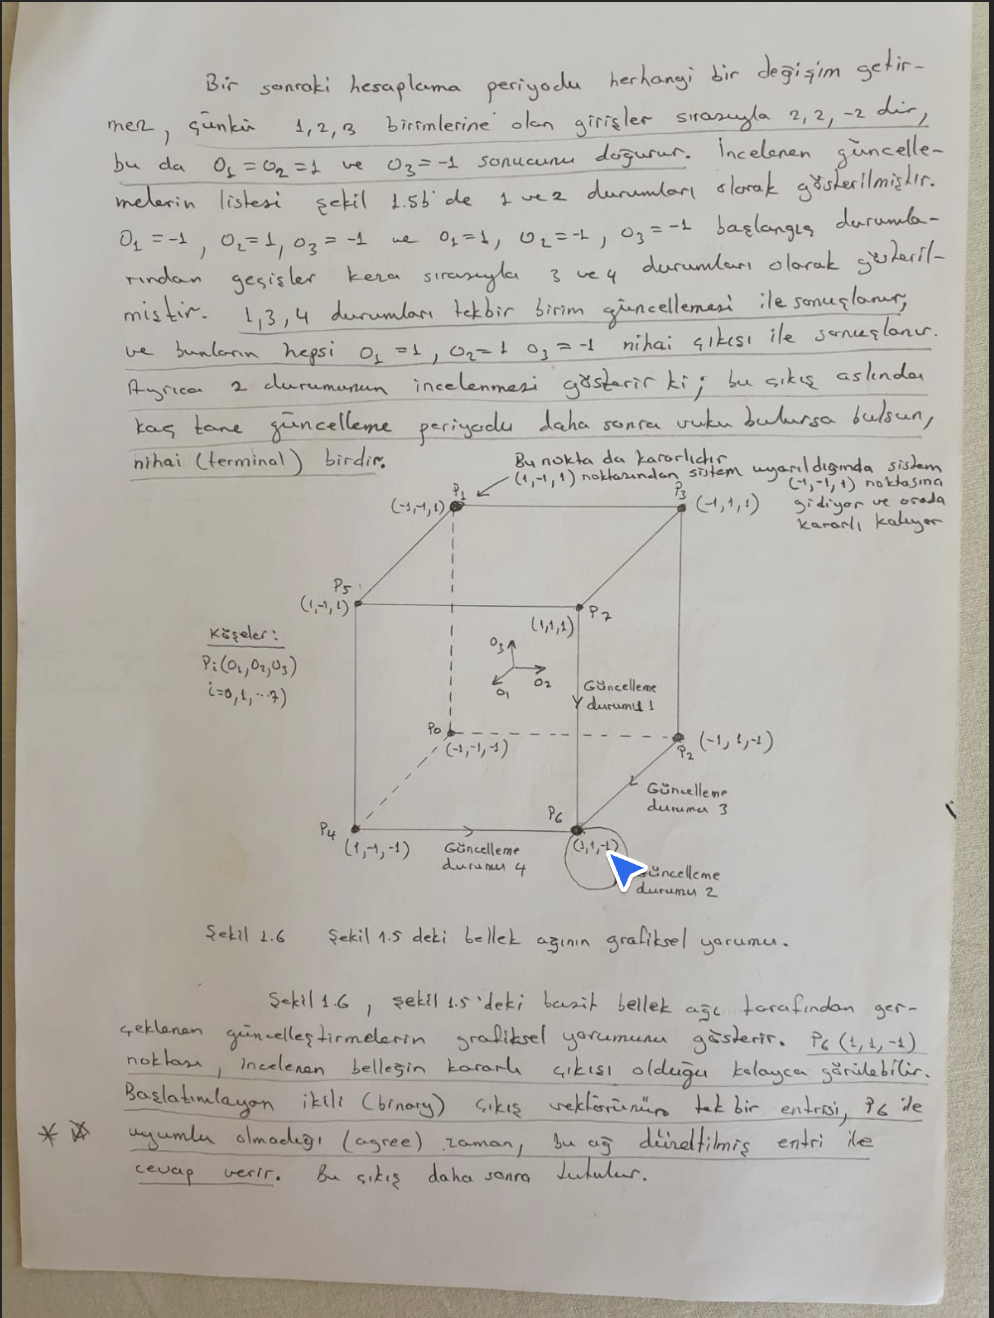 Bir sonraki hesaplama periyodu herhangi bir değişim getir-
mez, çünkü 1,2,3 birimlerine olan girişler sırasıyla 2,2,-2 dir,
bu da O1=O2=1 ve O3=-1 sonucunu doğurur. İncelenen güncelle-
melerin listesi şekil 1.5b'de 1 ve 2 durumları olarak gösterilmiştir.
O1=-1, O2=1, O3=-1 ve O1=1, O2=-1, O3=-1 başlangıç durumla-
rından geçişler keza sırasıyla 3 ve 4 durumları olarak gösteril-
miştir. 1,3,4 durumları tekbir birim güncellemesi ile sonuçlanır;
ve bunların hepsi O1=1, O2=1 O3=-1 nihai çıkışı ile sonuçlanır.
Ayrıca 2 durumunun incelenmesi gösterir ki; bu çıkış aslında
kaç tane güncelleme periyodu daha sonra vuku bulursa bulsun,
nihai (terminal) birdir.
Bu nokta da kararlıdır
(1,-1,1) noktasından sistem uyarıldığında sistem
(-1,-1,1) noktasına
gidiyor ve orada
kararlı kalıyor
P1
(-1,-1,1)
P3
(-1,1,1)
P5
(1,-1,1)
P7
(1,1,1)
Köşeler:
Pi(O1,O2,O3)
i=0,1,...7)
O3
O2
O1
Güncelleme
durumu 1
P0
(-1,-1,-1)
P2
(-1,1,-1)
Güncelleme
durumu 3
P4
(1,-1,-1)
Güncelleme
durumu 4
P6
(1,1,-1)
Güncelleme
durumu 2
Şekil 1.6 Şekil 1.5 deki bellek ağının grafiksel yorumu.
Şekil 1.6, şekil 1.5'deki basit bellek ağı tarafından ger-
çeklenen güncelleştirmelerin grafiksel yorumunu gösterir. P6 (1,1,-1)
noktası, incelenen belleğin kararlı çıkışı olduğu kolayca görülebilir.
Başlatımlayan ikili (binary) çıkış vektörünün tek bir entrisi, P6 ile
uyumlu olmadığı (agree) zaman, bu ağ düzeltilmiş entri ile
cevap verir. Bu çıkış daha sonra tutulur.